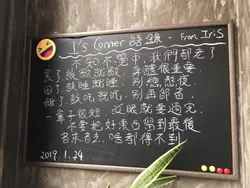 I'S Corner 語錄 - From IriS
不知不覺中, 我們都老了
累了就歇歇, 身體很重要,
困了就睡, 別總想夜
餓了就吃, 別再節省
一輩子很短, 一眨眼就要過完
不要把好東西留到最後
省來省去, 啥都得不到
2019. 1. 24